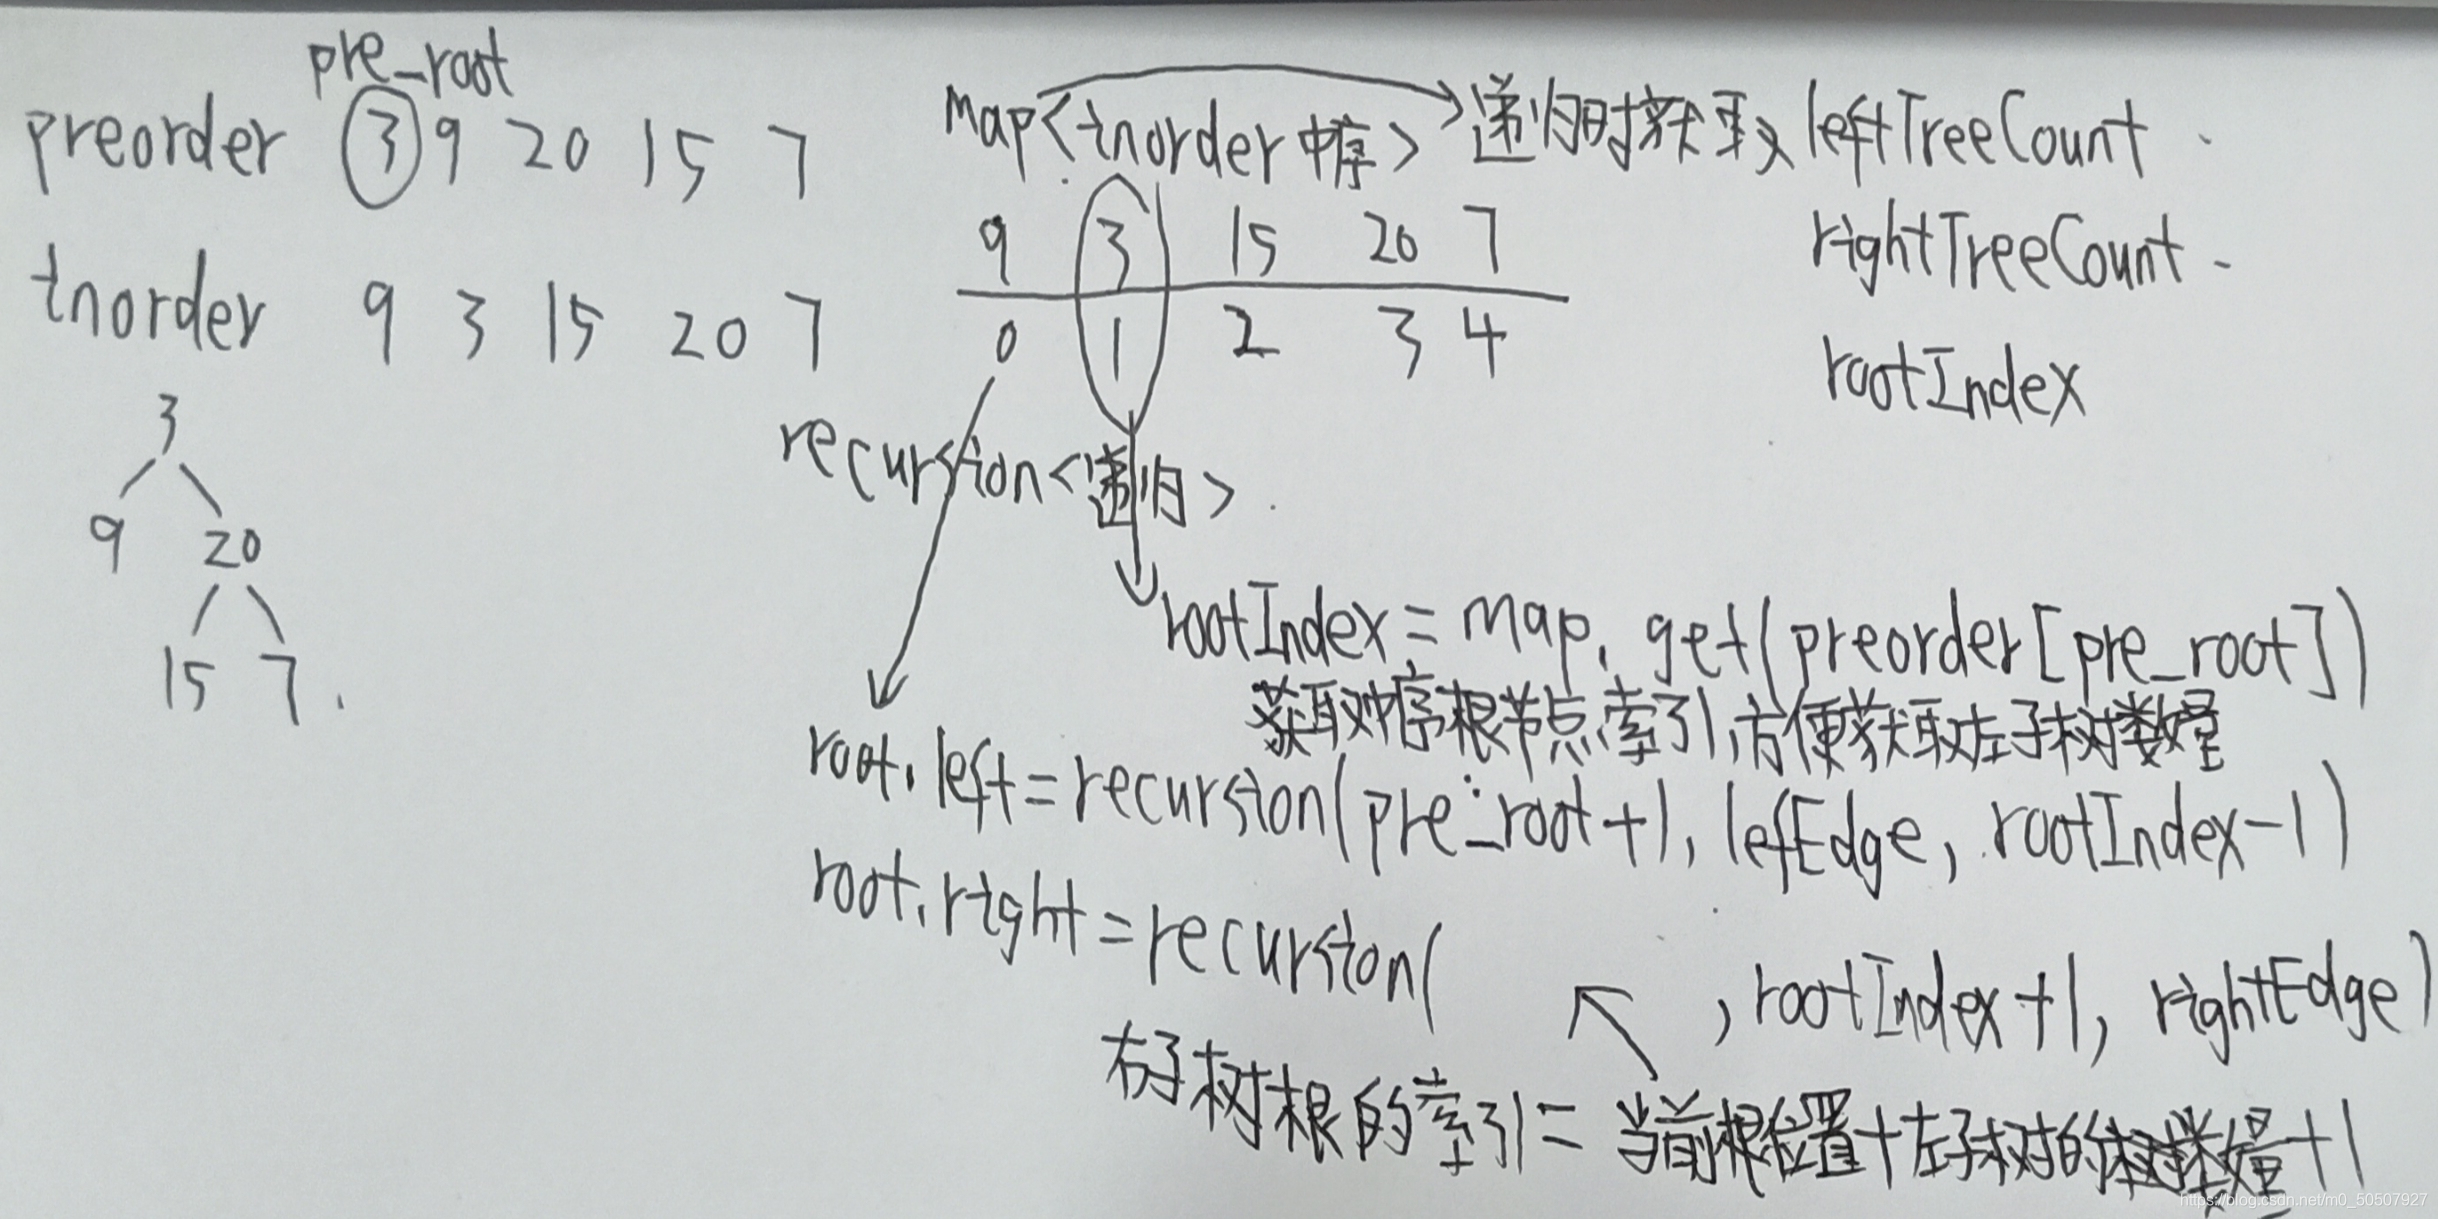 pre_root
preorder 3 9 20 15 7
inorder 9 3 15 20 7
3
9 20
15 7
map<inorder中序> 递归时获取leftTreeCount
rightTreeCount
rootIndex
9 3 15 20 7
0 1 2 3 4
recursion<递归>
rootIndex = map.get(preorder[pre_root])
获取中序根节点索引,方便获取左子树数量
root.left=recursion(pre_root+1, lefEdge, rootIndex-1)
root.right=recursion( , rootIndex+1, rightEdge)
右子树根的索引= 当前根位置+左子树的数量+1
https://blog.csdn.net/m0_50507927